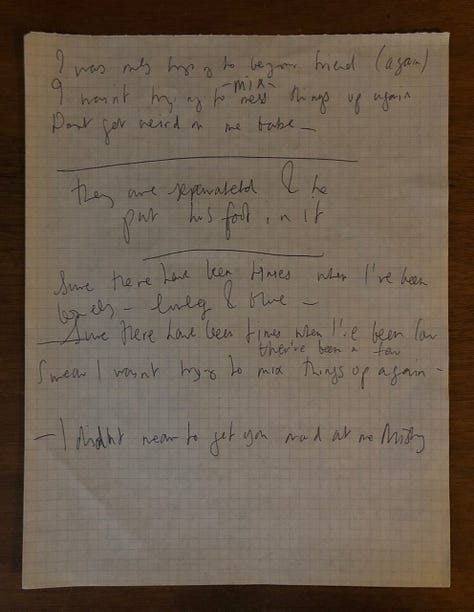 I was only trying to be your friend (again)
-mix-
I wasn't trying to mess things up again
Dont get weird on me babe -
They are separated & he
put his foot in it
Sure there have been times when I've been
lonely - lonely & blue -
Sure there have been times when I've been low
there've been a few
Swear I wasn't trying to mix things up again -
- I didn't mean to get you mad at me Missy